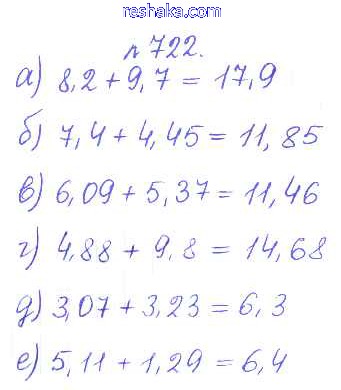 reshaka.com
№ 722.
а) 8,2 + 9,7 = 17,9
б) 7,4 + 4,45 = 11,85
в) 6,09 + 5,37 = 11,46
г) 4,88 + 9,8 = 14,68
д) 3,07 + 3,23 = 6,3
е) 5,11 + 1,29 = 6,4